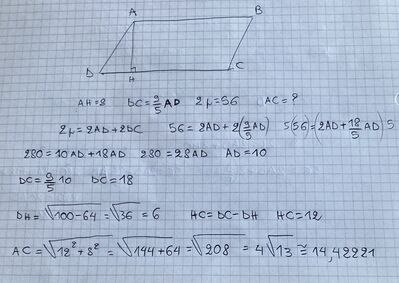 A B
D H C
AH=8 DC=9/5 AD 2p=56 AC=?
2p=2AD+2DC 56=2AD+2(9/5 AD) 5(56)=(2AD+18/5 AD)5
280=10AD+18AD 280=28AD AD=10
DC=9/5 10 DC=18
DH=√100-64=√36=6 HC=DC-DH HC=12
AC=√12²+8²=√144+64=√208=4√13≅14,42221